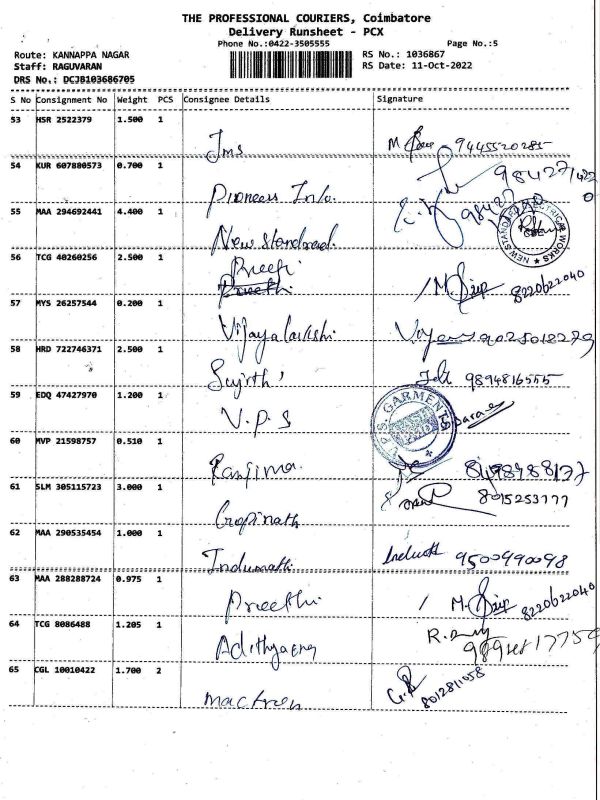 THE PROFESSIONAL COURIERS, Coimbatore
Delivery Runsheet - PCX
Phone No.:0422-3505555 Page No.:5
Route: KANNAPPA NAGAR RS No.: 1036867
Staff: RAGUVARAN RS Date: 11-Oct-2022
DRS No.: DCJB103686705
S No Consignment No Weight PCS Consignee Details Signature
53 HSR 2522379 1.500 1
Jms 9445520285
54 KUR 607880573 0.700 1
Pioneers Info.
55 MAA 294692441 4.400 1
New Standread
NEW STANDARD ELECTRICAL WORKS
CBE
56 TCG 40260256 2.500 1
Preethi 8220622040
57 MYS 26257544 0.200 1
Vijayalakshmi 9025012279
58 HRD 722746371 2.500 1
Sujith 9894816555
59 EDQ 47427970 1.200 1
V.P.S
V.P.S. GARMENTS
60 MVP 21598757 0.510 1
Ranjima
61 SLM 305115723 3.000 1
Gopinath 8015253777
62 MAA 290535454 1.000 1
Indumathi 9500990098
63 MAA 288288724 0.975 1
Preethi 8220622040
64 TCG 8086488 1.205 1
65 CGL 10010422 1.700 2
8012811058